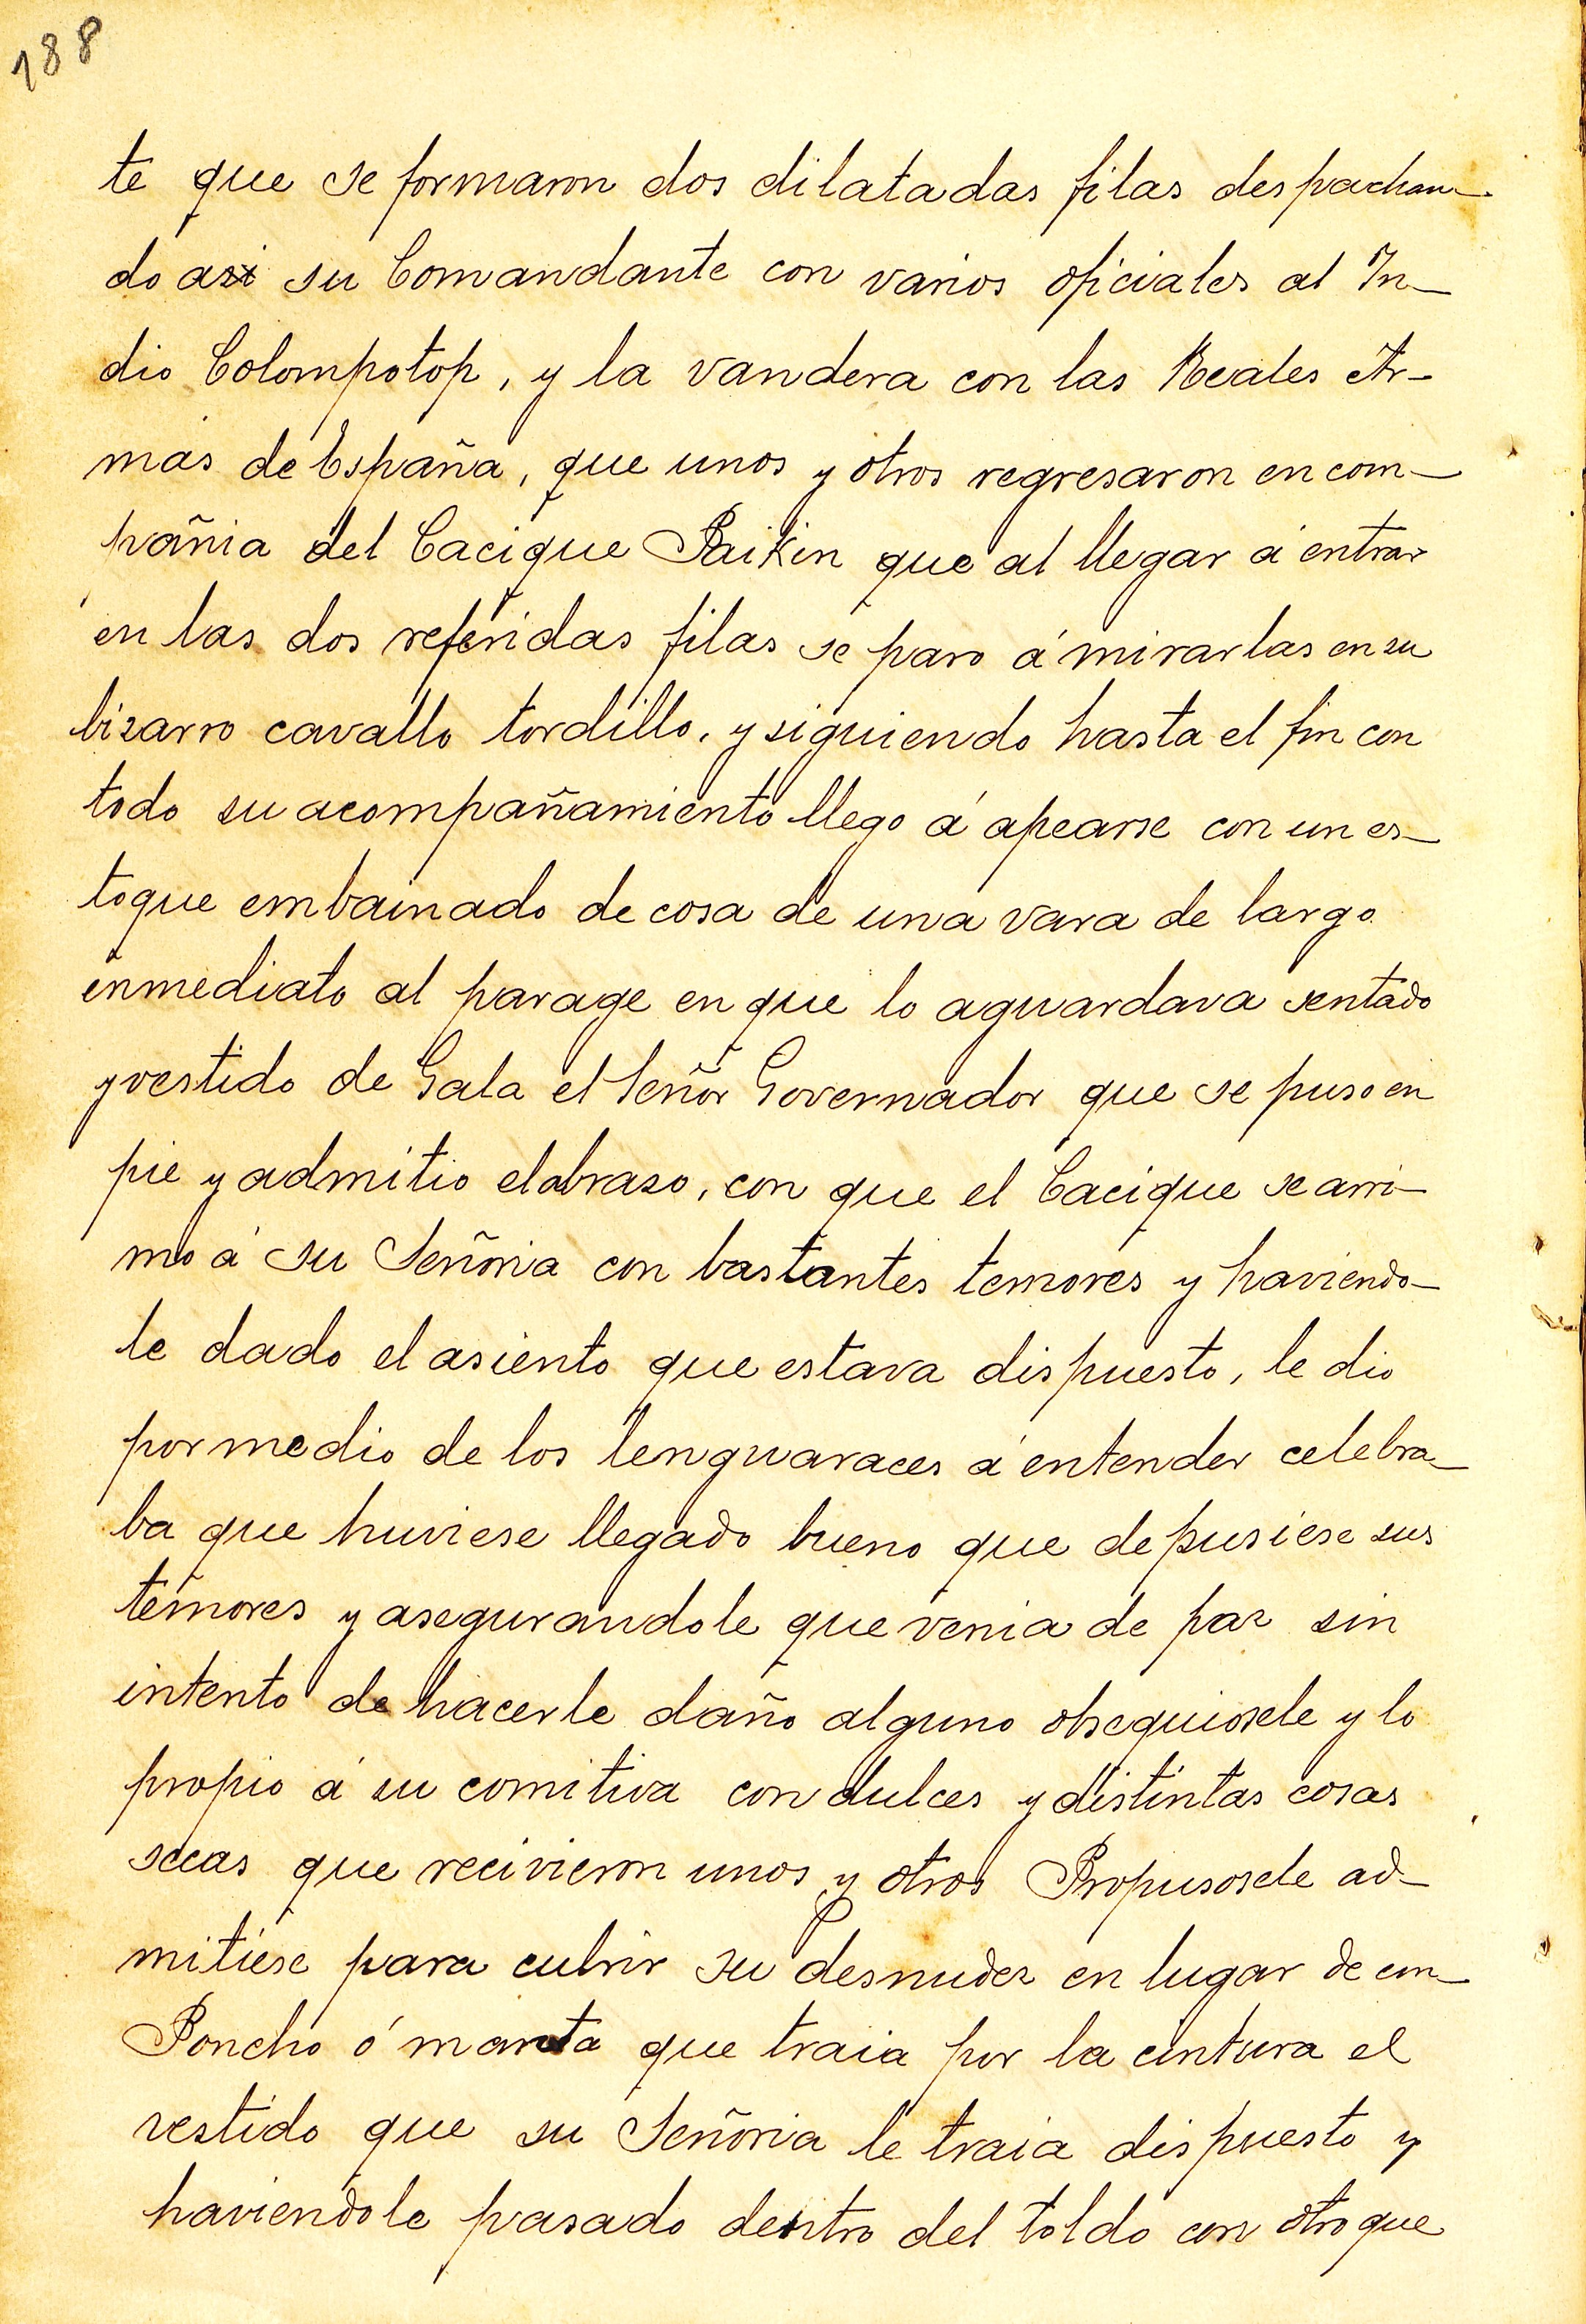 188
te que se formaron dos dilatadas filas despachan-
do asi su Comandante con varios oficiales al In-
dio Colompotop, y la vandera con las Reales Ar-
mas de España, que unos y otros regresaron en com-
pañia del Cacique Paikin que al llegar á entrar
en las dos referidas filas se paro á mirarlas en su
bizarro cavallo tordillo, y siguiendo hasta el fin con
todo su acompañamiento llego á apearse con un es-
toque embainado de cosa de una vara de largo
inmediato al parage en que lo aguardava sentado
y vestido de Gala el Señor Governador que se puso en
pie y admitio el abraso, con que el Cacique se arri-
mo á su Señoria con bastantes temores y haviendo-
le dado el asiento que estava dispuesto, le dio
por medio de los lenguaraces á entender celebra-
ba que huviese llegado bueno que depusiese sus
temores y asegurandole que venia de paz sin
intento de hacerle daño alguno obsequiosele y lo
propio á su comitiva con dulces y distintas cosas
secas que recivieron unos y otros Propusosele ad-
mitiese para cubrir su desnudez en lugar de un
Poncho ó manta que traia por la cintura el
vestido que su Señoria le traia dispuesto y
haviendole pasado dentro del toldo con otro que